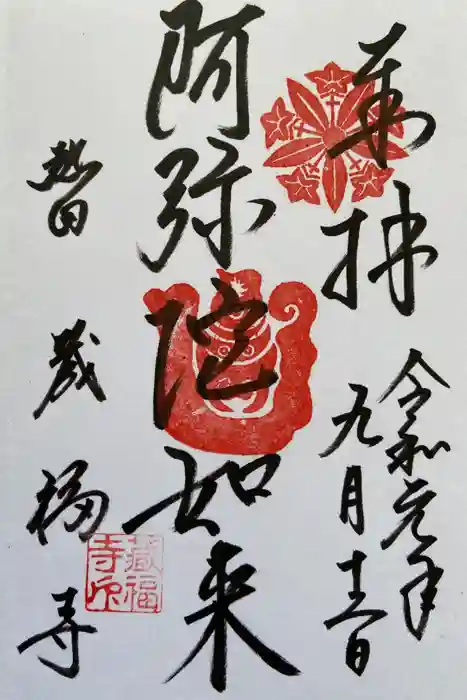 奉拝
令和元年
九月十六日
阿弥陀如来
熱田 蔵福寺
蔵福
寺印